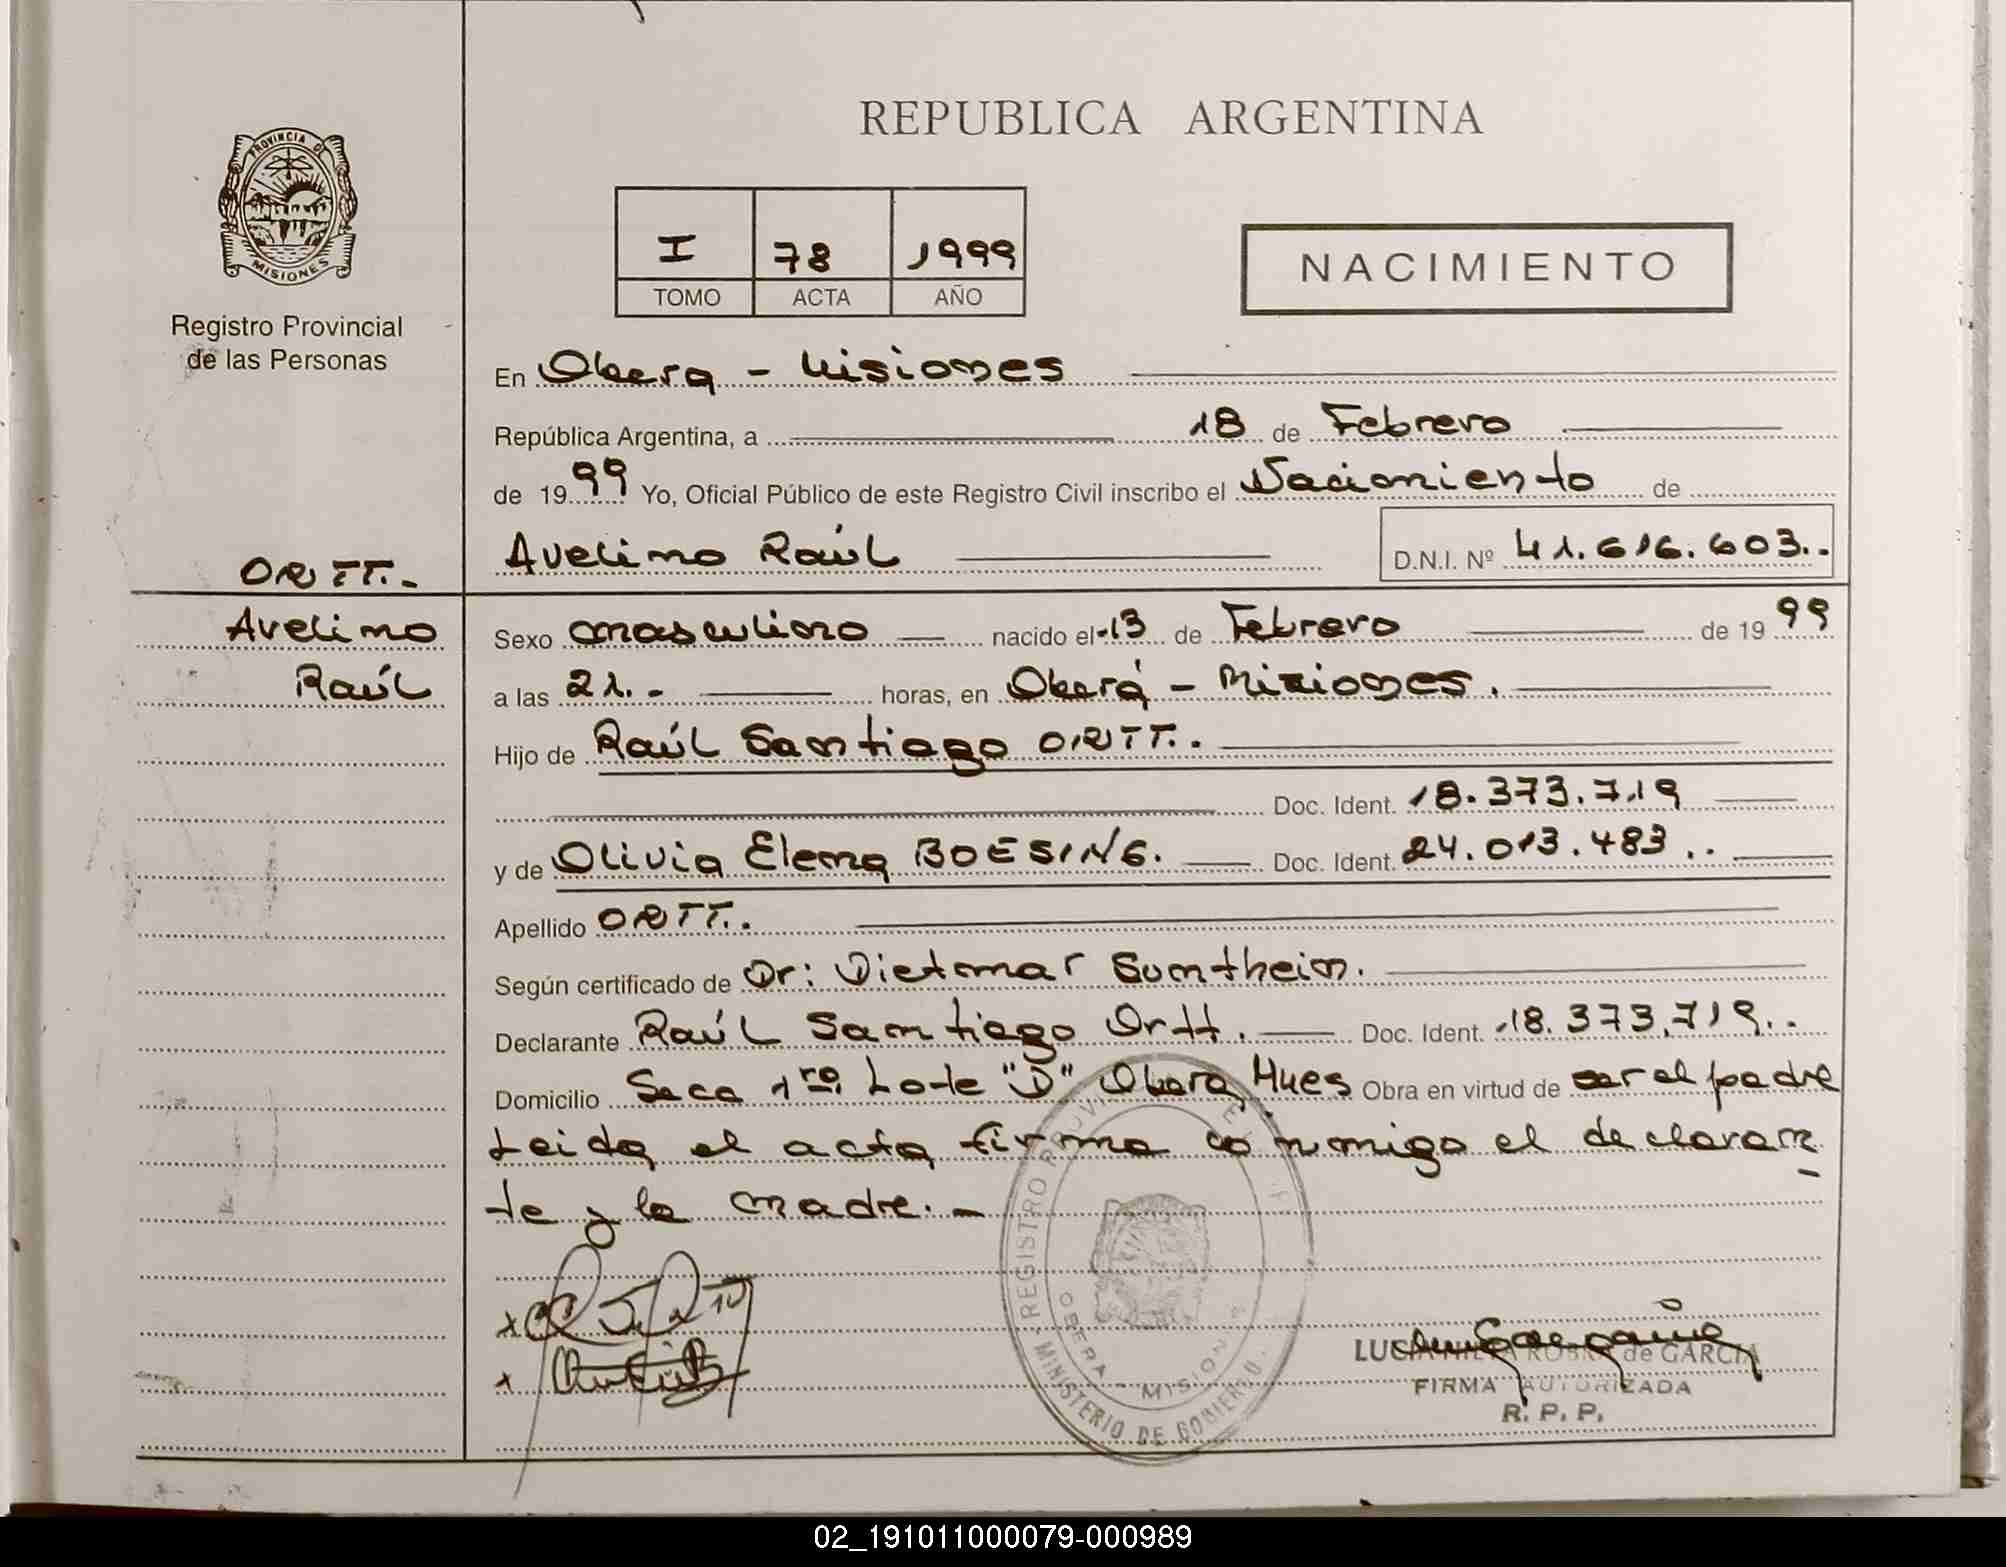 PROVINCIA DE
MISIONES
Registro Provincial
de las Personas
REPUBLICA ARGENTINA
I 78 1999
TOMO ACTA AÑO
NACIMIENTO
En Obera - Misiones
República Argentina, a 18 de Febrero
de 1999 Yo, Oficial Público de este Registro Civil inscribo el Nacimiento de
Avelino Raúl D.N.I. Nº 41.616.603..
ORTT.-
Avelino
Raúl
Sexo masculino nacido el 13 de Febrero de 1999
a las 21.- horas, en Oberá - Misiones.
Hijo de Raúl Santiago ORTT.
Doc. Ident. 18.373.719
y de Olivia Elena BOESING. Doc. Ident. 24.013.483..
Apellido ORTT.
Según certificado de Dr: Dietmar Sontheim.
Declarante Raúl Santiago Ortt. Doc. Ident. 18.373.719..
Domicilio Secc 1ra. Lote "D" Obera Mnes Obra en virtud de ser el padre
Leida el acta firma conmigo el declaran
te y la madre.-
REGISTRO
OBERA - MISIONES
MINISTERIO DE GOBIERNO.
de GARCIA
FIRMA AUTORIZADA
R. P. P.
02_191011000079-000989